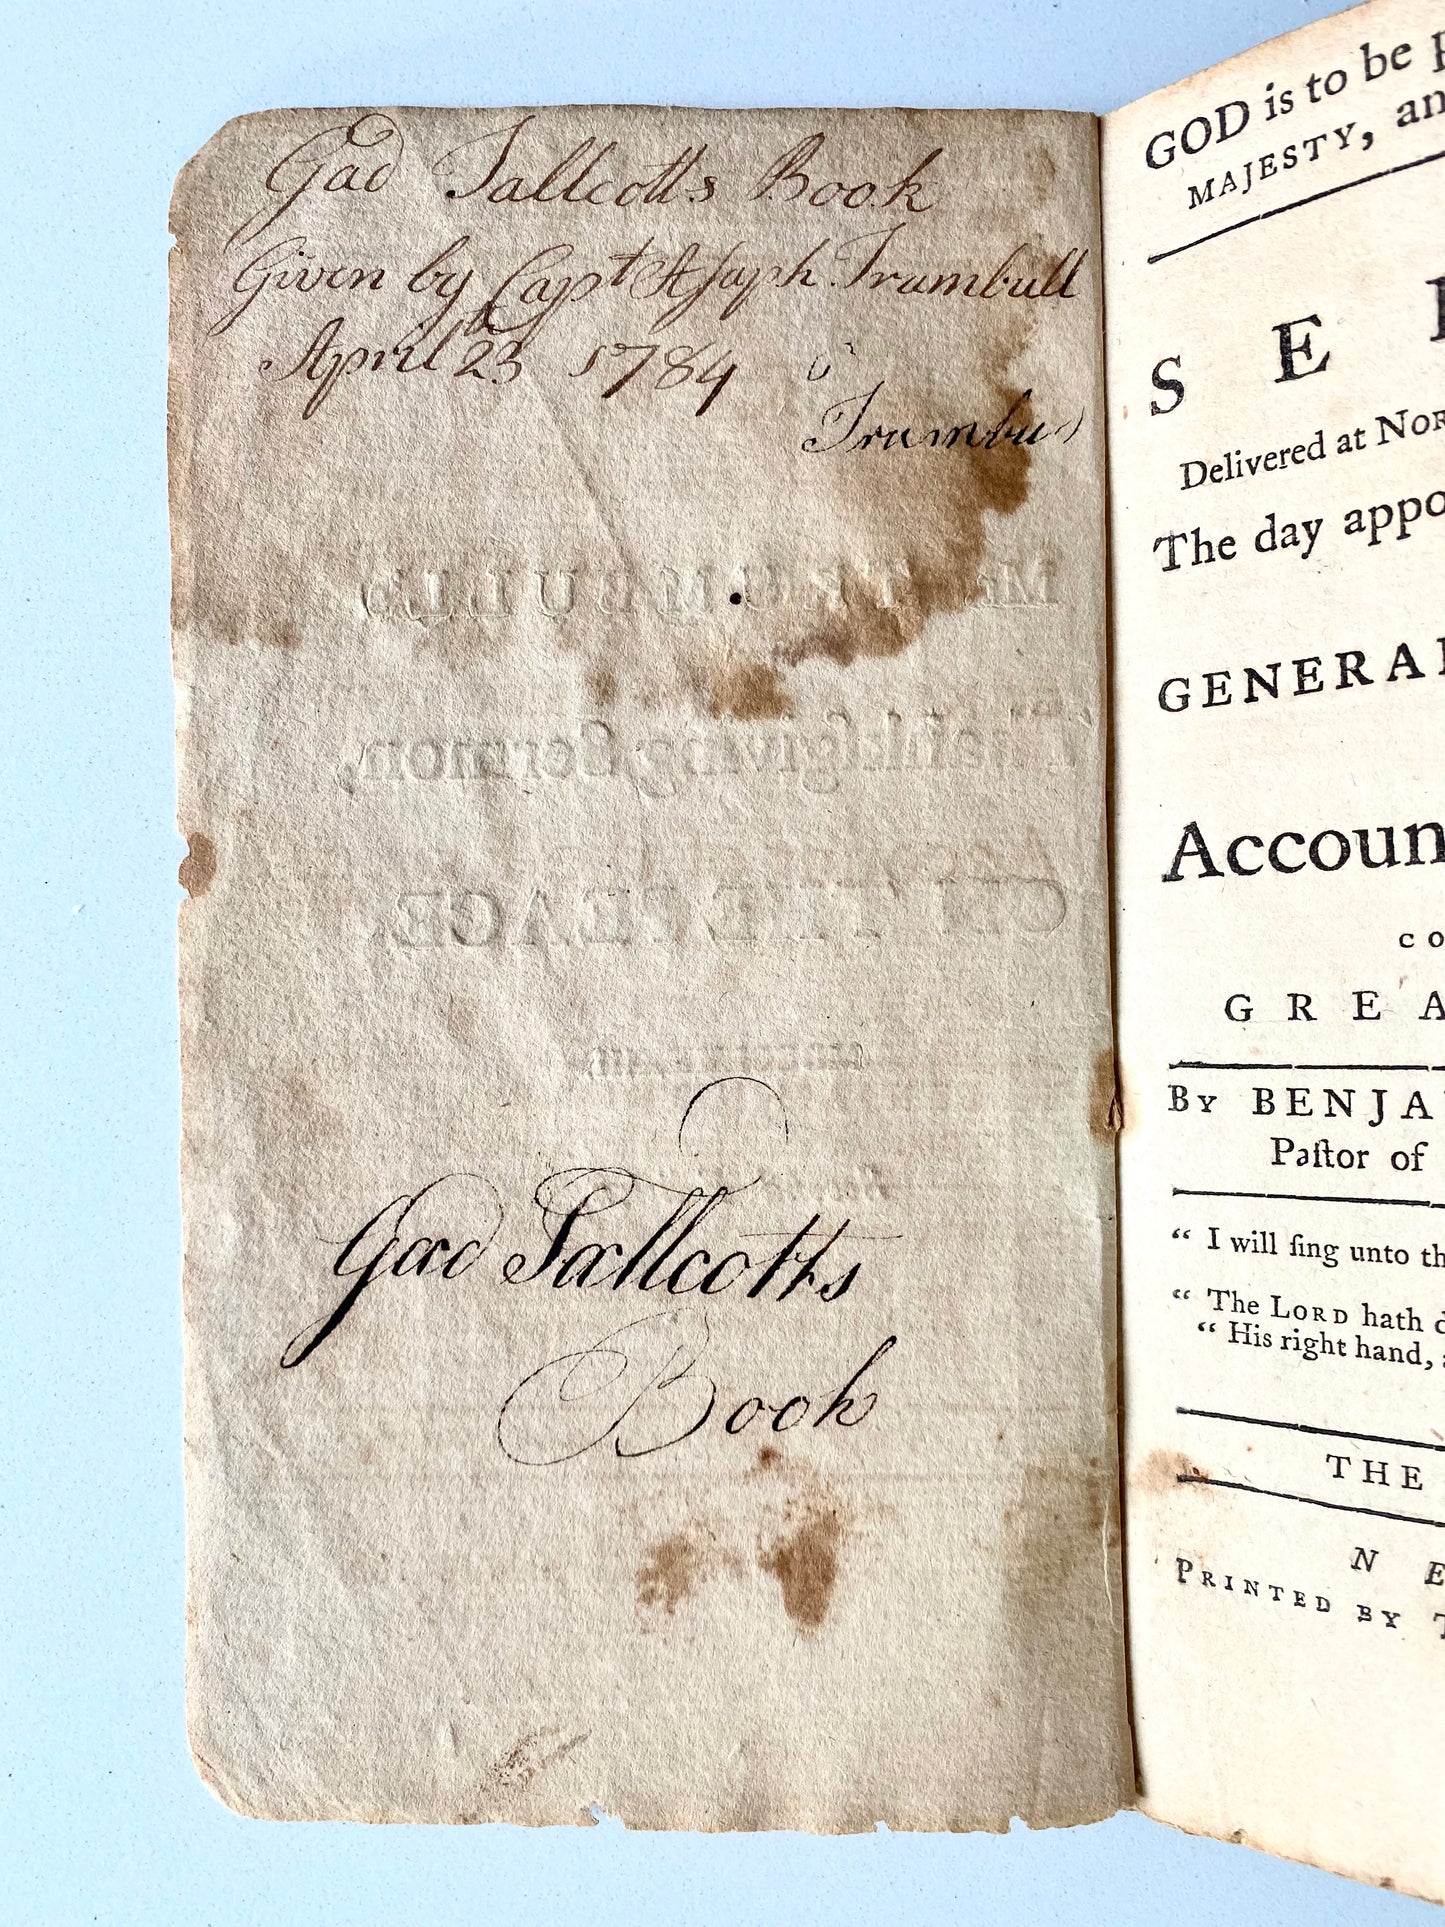 Gad Tallcotts Book
Given by Capt Asaph Trumbull
April 23th 1784
Trumbu
Mr. TRUMBULL's
Thankſgiving Sermon,
ON THE PEACE.
Gad Tallcotts
Book
GOD is to be
MAJESTY, an
SE
Delivered at NOR
The day appo
GENERAL
Accoun
CO
GREA
BY BENJA
Paſtor of
“ I will ſing unto th
“ The LORD hath d
“ His right hand, a
THE
NE
PRINTED BY T